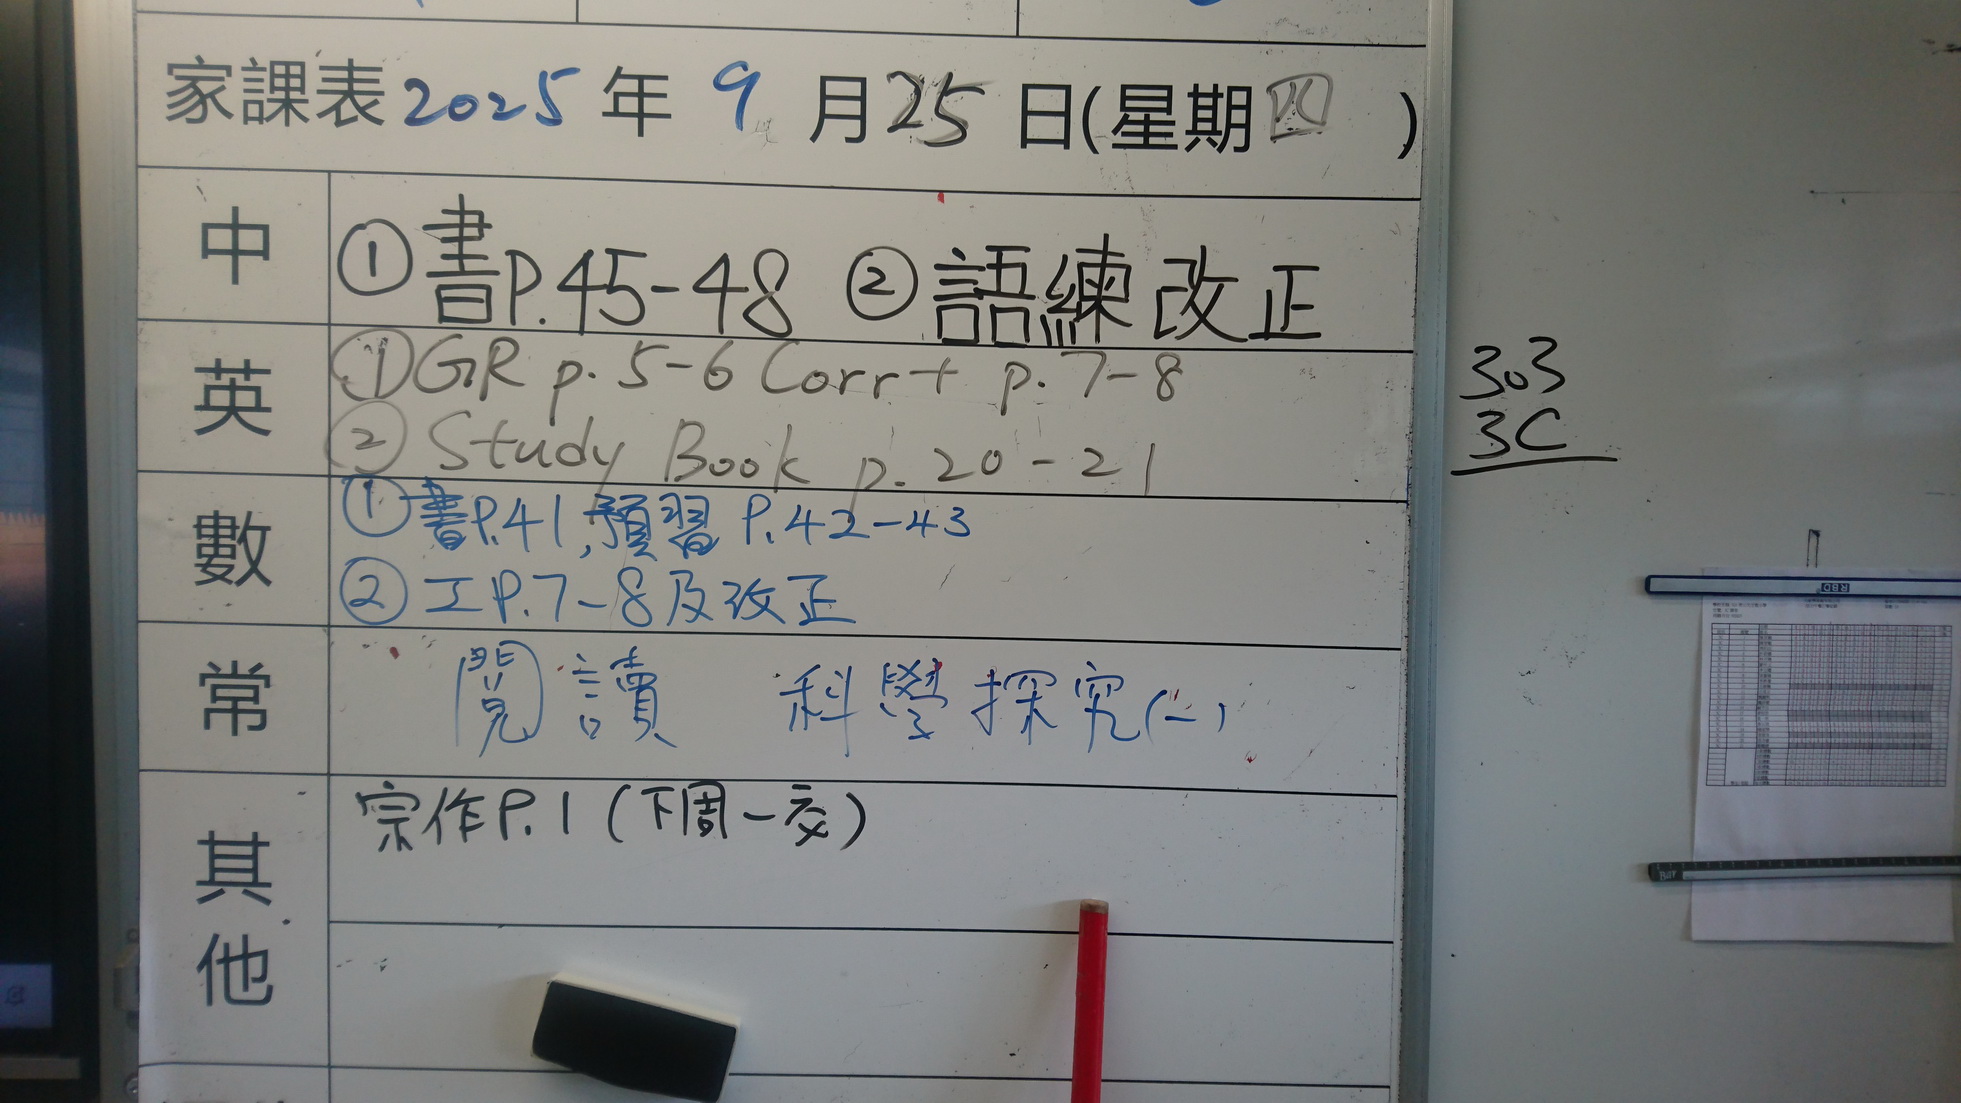 家課表2025年9月25日(星期四)
中
①書P.45-48 ②語練改正
英
①GR p.5-6 Corr+ p.7-8
②Study Book p.20-21
數
①書P.41,預習P.42-43
②工P.7-8及改正
常
閱讀 科學探究(一)
其他
宗作P.1(下周一交)
303
3C